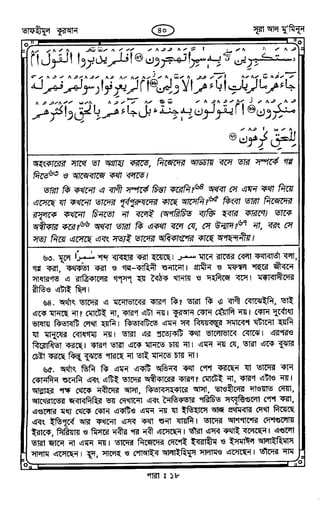 তাফহীমুল কুরআন
৪০
সূরা আল মু'মিনূন
مُسْتَكْبِرِينَ ۖ بِهِ سٰمِرًا تَهْجُرُونَ ﴿٦٧﴾ أَفَلَمْ يَدَّبَّرُوا الْقَوْلَ أَمْ
جَاءَهُمْ مَّا لَمْ يَأْتِ آبَاءَهُمُ الْأَوَّلِينَ ﴿٦٨﴾ أَمْ لَمْ يَعْرِفُوا رَسُولَهُمْ فَهُمْ لَهُ
مُنكِرُونَ ﴿٦٩﴾ أَمْ يَقُولُونَ بِهِ جِنَّةٌ ۚ بَلْ جَاءَهُم بِالْحَقِّ وَأَكْثَرُهُمْ
لِلْحَقِّ كٰرِهُونَ ﴿٧٠﴾
অহংকারের সাথে তা অগ্রাহ্য করতে, নিজেদের আড্ডায় বসে তার সম্পর্কে গল্প
দিতে৬৩ ও আজেবাজে কথা বলতে।
তারা কি কখনো এ বাণী সম্পর্কে চিন্তা করেনি?৬৪ অথবা সে এমন কথা নিয়ে
এসেছে যা কখনো তাদের পূর্বপুরুষদের কাছে আসেনি?৬৫ কিংবা তারা নিজেদের
রসূলকে কখনো চিনতো না বলেই (অপরিচিত ব্যক্তি হবার কারণে) তাকে
অস্বীকার করে?৬৬ অথবা তারা কি একথা বলে যে, সে উন্মাদ?৬৭ না, বরং সে
সত্য নিয়ে এসেছে এবং সত্যই তাদের অধিকাংশের কাছে অপছন্দনীয়।
৬৩. মূলে سمر শব্দ ব্যবহার করা হয়েছে। سمر মানে রাতের বেলা কথাবার্তা বলা,
গপ্প করা, কথকতা করা ও গল্প-কাহিনী শুনানো। গ্রামীন ও মফস্বল শহুরে জীবনে
সাধারণত এ রাত্রিকালের গপসপ্ হয় বৈঠক খানায় ও দহলিজে বসে। মক্কাবাসীদের
রীতিও এটাই ছিল।
৬৪. অর্থাৎ তাদের এ মনোভাবের কারণ কি? তারা কি এ বাণী বোঝেইনি, তাই
একে মানছে না? মোটেই না, কারণ এটা নয়। কুরআন কোন হেঁয়ালি নয়। কোন দুর্বোধ্য
ভাষায় কিতাবটি লেখা হয়নি। কিতাবটিতে এমন সব বিষয়বস্তুর সমাবেশ ঘটানো হয়নি
যা মানুষের বোধগম্য নয়। তারা এর প্রত্যেকটি কথা ভালোভাবে বোঝে। এরপরও
বিরোধিতা করছে। কারণ তারা একে মানতে চায় না। এমন নয় যে, তারা একে বুঝার
চেষ্টা করছে কিন্তু বুঝতে পারছে না তাই মানতে চায় না।
৬৫. অর্থাৎ তিনি কি এমন একটি অভিনব কথা পেশ করছেন যা তাদের কান
কোনদিন শুনেনি এবং এটিই তাদের অস্বীকারের কারণ? মোটেই না, কারণ এটাও নয়।
আল্লাহর পক্ষ থেকে নবীদের আসা, কিতাবসহকারে আসা, তাওহীদের দাওয়াত দেয়া,
আখেরাতের জবাবদিহির ভয় দেখানো এবং নৈতিকতার পরিচিত সৎবৃত্তিগুলো পেশ করা,
এগুলোর মধ্য থেকে কোন একটিও এমন নয় যা ইতিহাসে আজ প্রথমবার দেখা দিয়েছে
এবং ইতিপূর্বে আর কখনো এসব কথা শুনা যায়নি। তাদের আশপাশের দেশগুলোয়
ইরাকে, সিরিয়ায় ও মিসরে নবীর পর নবী এসেছেন। তারা এসব কথাই বলেছেন। এগুলো
তারা জানে না এমন নয়। তাদের নিজেদের দেশেই ইবরাহীম ও ইসমাঈল আলাইহিমাস
সালাম এসেছেন। হূদ, সালেহ ও শোআইব আলাইহিমুস সালামও এসেছেন। তাদের নাম
পারা : ১৮